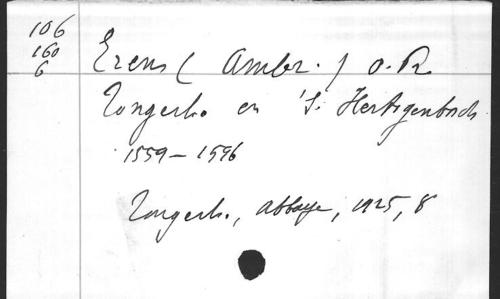 106
160
6
Erens ( Ambr. ) O. R.
Tongerlo en 'S. Hertogenbosch
1559 - 1596
Tongerlo, abbaye, 1925, 8